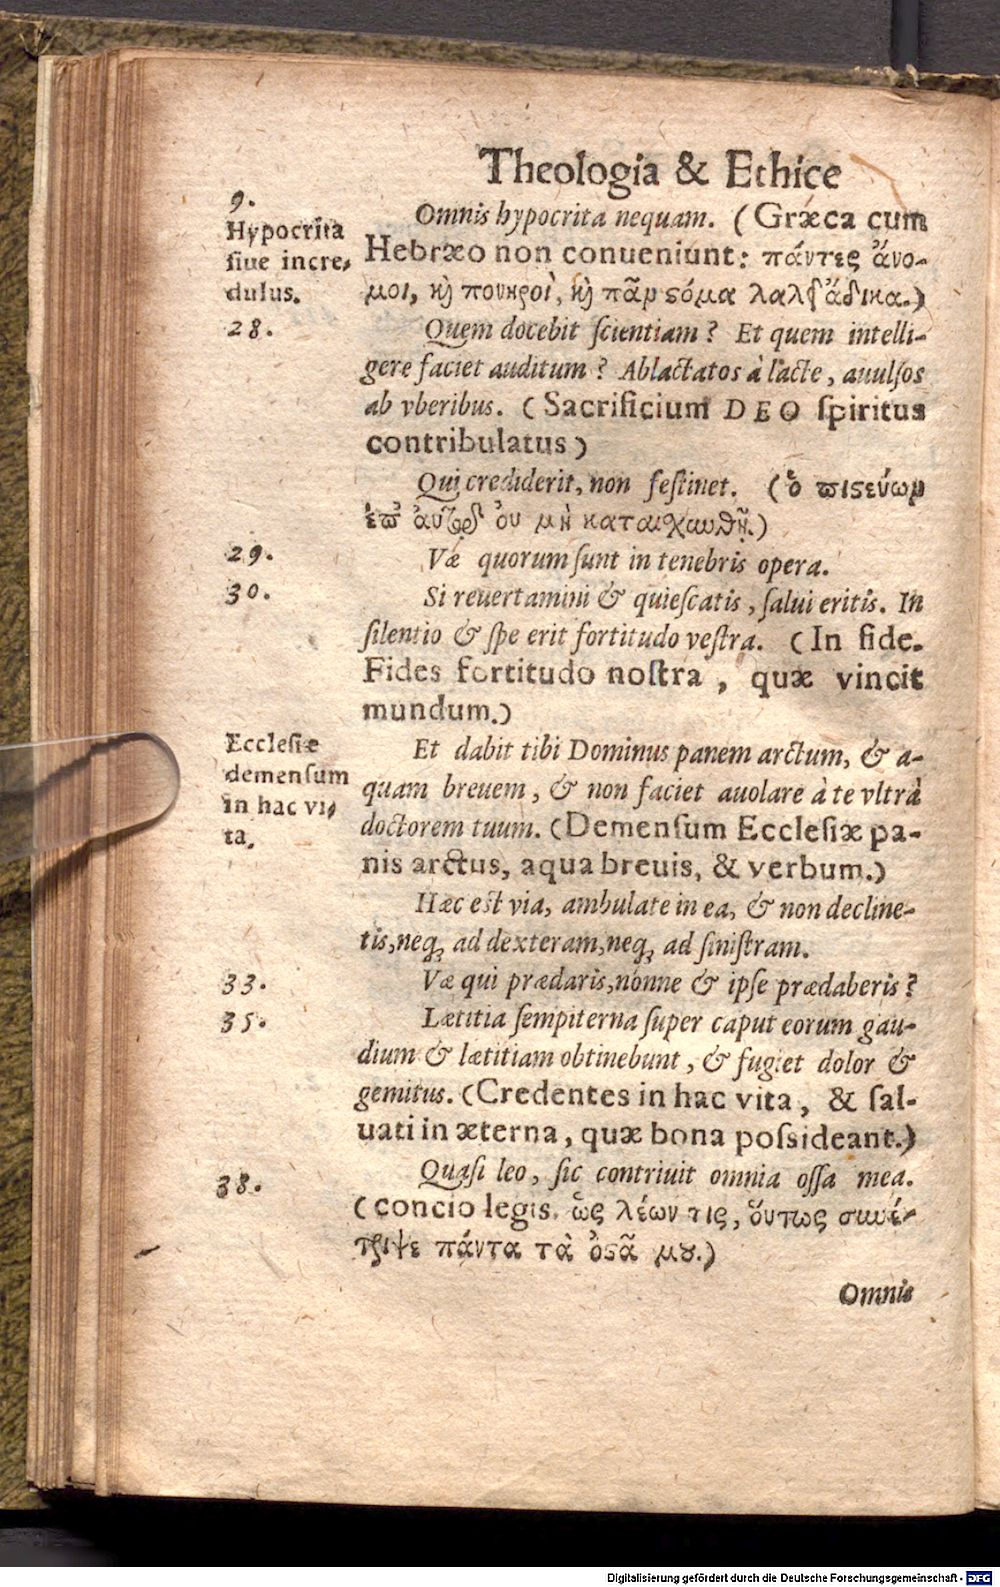 Theologia & Ethice
9.
Hypocrita
ſiue incre-
dulus.
Omnis hypocrita nequam. (Græca cum
Hebræo non conueniunt: πάντες ἄνο-
μοι, ϗ πονηροὶ, ϗ πᾶν ϛόμα λαλεῖ ἄδικα.)
28.
Quem docebit ſcientiam? Et quem intelli-
gere faciet auditum? Ablactatos à lacte, auulſos
ab vberibus. (Sacrificium DEO ſpiritus
contribulatus)
Qui crediderit, non feſtinet. (ὁ ϖιϛεύων
ἐϖ' αὐτῷ οὐ μὴ καταιχυνθῇ.)
29.
Væ quorum ſunt in tenebris opera.
30.
Si reuertamini & quieſcatis, ſalui eritis. In
ſilentio & ſpe erit fortitudo veſtra. (In fide.
Fides fortitudo noſtra, quæ vincit
mundum.)
Eccleſiæ
demenſum
in hac vi-
ta.
Et dabit tibi Dominus panem arctum, & a-
quam breuem, & non faciet auolare à te vltrà
doctorem tuum. (Demenſum Eccleſiæ pa-
nis arctus, aqua breuis, & verbum.)
Hæc est via, ambulate in ea, & non decline-
tis, neq; ad dexteram, neq; ad ſiniſtram.
33.
Væ qui prædaris, nónne & ipſe prædaberis?
35.
Lætitia ſempiterna ſuper caput eorum gau-
dium & lætitiam obtinebunt, & fugiet dolor &
gemitus. (Credentes in hac vita, & ſal-
uati in æterna, quæ bona poſsideant.)
38.
Quaſi leo, ſic contriuit omnia oſſa mea.
(concio legis. ὡς λέων τις, οὕτως συνέ-
τριψε πάντα τὰ ὀϛᾶ μȣ.)
Omnis
Digitalisierung gefördert durch die Deutsche Forschungsgemeinschaft - DFG